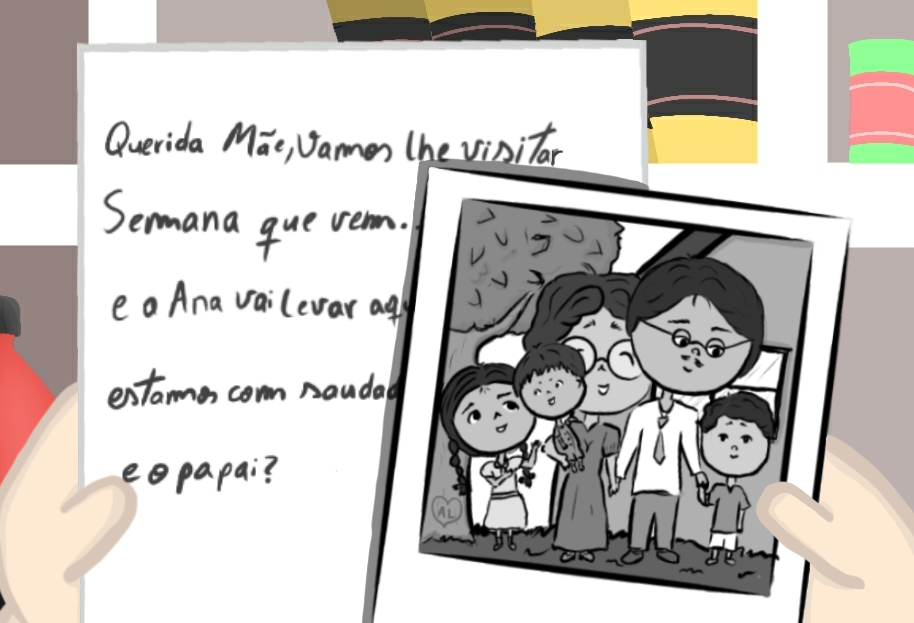 Querida Mãe, Vamos lhe visitar
Semana que vem.
e o Ana vai levar aqu
estamos com saudad
e o papai?
AL